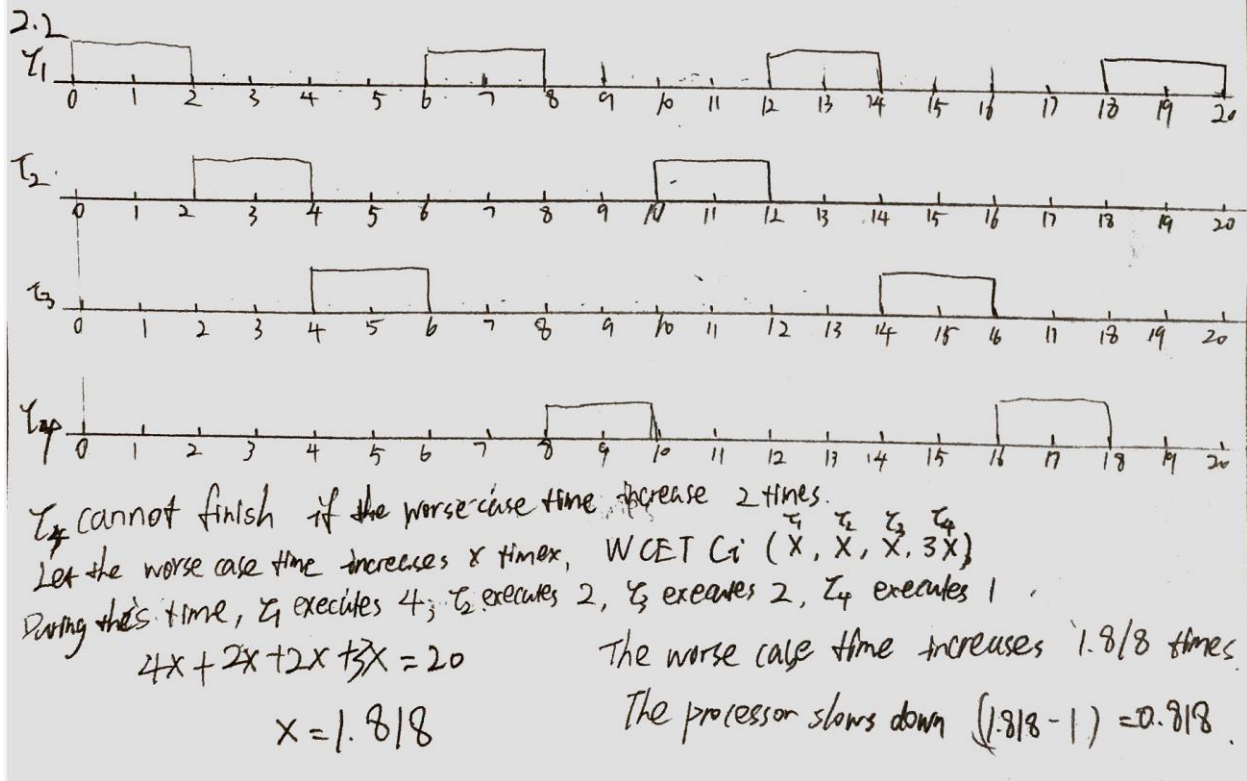 2.2
τ1
0 1 2 3 4 5 6 7 8 9 10 11 12 13 14 15 16 17 18 19 20
τ2
0 1 2 3 4 5 6 7 8 9 10 11 12 13 14 15 16 17 18 19 20
τ3
0 1 2 3 4 5 6 7 8 9 10 11 12 13 14 15 16 17 18 19 20
τ4
0 1 2 3 4 5 6 7 8 9 10 11 12 13 14 15 16 17 18 19 20
τ4 cannot finish if the worse-case time increase 2 times.
τ1 τ2 τ3 τ4
Let the worse case time increases x timex, WCET Ci (X, X, X, 3X)
During this time, τ1 executes 4; τ2 executes 2, τ3 executes 2, τ4 executes 1.
4x + 2x + 2x + 3x = 20
The worse case time increases 1.818 times.
x = 1.818
The processor slows down (1.818 - 1) = 0.818.